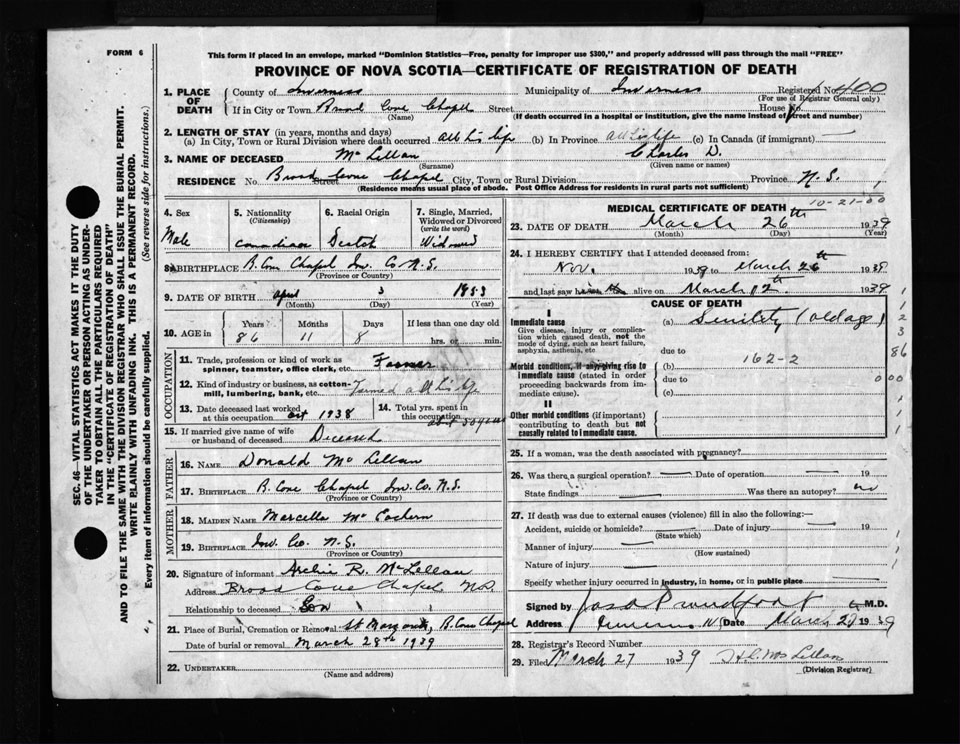 FORM 6
This form if placed in an envelope, marked "Dominion Statistics—Free, penalty for improper use $300," and properly addressed will pass through the mail "FREE"
PROVINCE OF NOVA SCOTIA—CERTIFICATE OF REGISTRATION OF DEATH
SEC. 46—VITAL STATISTICS ACT MAKES IT THE DUTY
OF THE UNDERTAKER OR PERSON ACTING AS UNDER-
TAKER TO OBTAIN ALL THE PARTICULARS REQUIRED
IN THE "CERTIFICATE OF REGISTRATION OF DEATH"
AND TO FILE THE SAME WITH THE DIVISION REGISTRAR WHO SHALL ISSUE THE BURIAL PERMIT.
WRITE PLAINLY WITH UNFADING INK. THIS IS A PERMANENT RECORD.
Every item of information should be carefully supplied. (See reverse side for instructions.)
1. PLACE OF DEATH County of Inverness Municipality of Inverness Registered No. 400
(For use of Registrar General only)
If in City or Town Broad Cove Chapel Street House No.
(Name) (If death occurred in a hospital or institution, give the name instead of street and number)
2. LENGTH OF STAY (in years, months and days)
(a) In City, Town or Rural Division where death occurred all his life (b) In Province all his life (c) In Canada (if immigrant) —
3. NAME OF DECEASED McLellan Charles D.
(Surname) (Given name or names)
RESIDENCE No. Broad Cove Chapel Street City, Town or Rural Division Province N.S.
(Residence means usual place of abode. Post Office Address for residents in rural parts not sufficient)
4. Sex Male
5. Nationality (Citizenship) Canadian
6. Racial Origin Scotch
7. Single, Married, Widowed or Divorced (write the word) Widowed
8. BIRTHPLACE B. Cove Chapel Inv. Co. N.S.
(Province or Country)
9. DATE OF BIRTH April 3 1853
(Month) (Day) (Year)
10. AGE in Years Months Days If less than one day old
86 11 8 hrs. or min.
OCCUPATION
11. Trade, profession or kind of work as spinner, teamster, office clerk, etc. Farmer
12. Kind of industry or business, as cotton-mill, lumbering, bank, etc. Farmed all his life
13. Date deceased last worked at this occupation Oct 1938
14. Total yrs. spent in this occupation abt 50 years
15. If married give name of wife or husband of deceased Deceased
FATHER
16. NAME Donald McLellan
17. BIRTHPLACE B. Cove Chapel Inv. Co. N.S.
(Province or Country)
MOTHER
18. MAIDEN NAME Marcella McEachern
19. BIRTHPLACE Inv. Co. N.S.
(Province or Country)
20. Signature of informant Archie R. McLellan
Address Broad Cove Chapel N.S.
Relationship to deceased Son
21. Place of Burial, Cremation or Removal St Margaret, B. Cove Chapel
Date of burial or removal March 28th 1939
22. UNDERTAKER
(Name and address)
MEDICAL CERTIFICATE OF DEATH 10-21-00
23. DATE OF DEATH March 26th 1939
(Month) (Day) (Year)
24. I HEREBY CERTIFY that I attended deceased from:
Nov. 1938 to March 26th 1939
and last saw him alive on March 12th 1939
CAUSE OF DEATH
I
Immediate cause (a) Senility (old age)
Give disease, injury or complication which caused death, not the mode of dying, such as heart failure, asphyxia, asthenia, etc due to
Morbid conditions, if any, giving rise to immediate cause (stated in order proceeding backwards from immediate cause) (b) 162-2
due to
(c)
II
Other morbid conditions (if important) contributing to death but not causally related to immediate cause.
1
1
2
3
86
000
25. If a woman, was the death associated with pregnancy?
26. Was there a surgical operation? — Date of operation — 19
State findings — Was there an autopsy? no
27. If death was due to external causes (violence) fill in also the following:—
Accident, suicide or homicide? — Date of injury — 19
(State which)
Manner of injury —
(How sustained)
Nature of injury —
Specify whether injury occurred in industry, in home, or in public place —
Signed by Jas A Proudfoot M.D.
Address Inverness N.S. Date March 27 1939
28. Registrar's Record Number
29. Filed March 27 1939 H.C. McLellan
(Division Registrar)